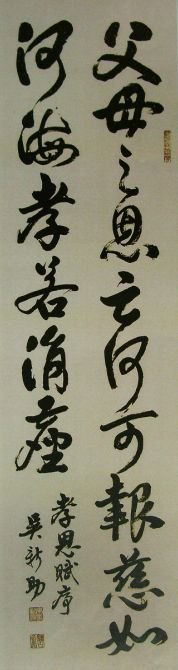 父母之恩云何可報慈如
河海孝若涓塵
孝思賦序
吳新助